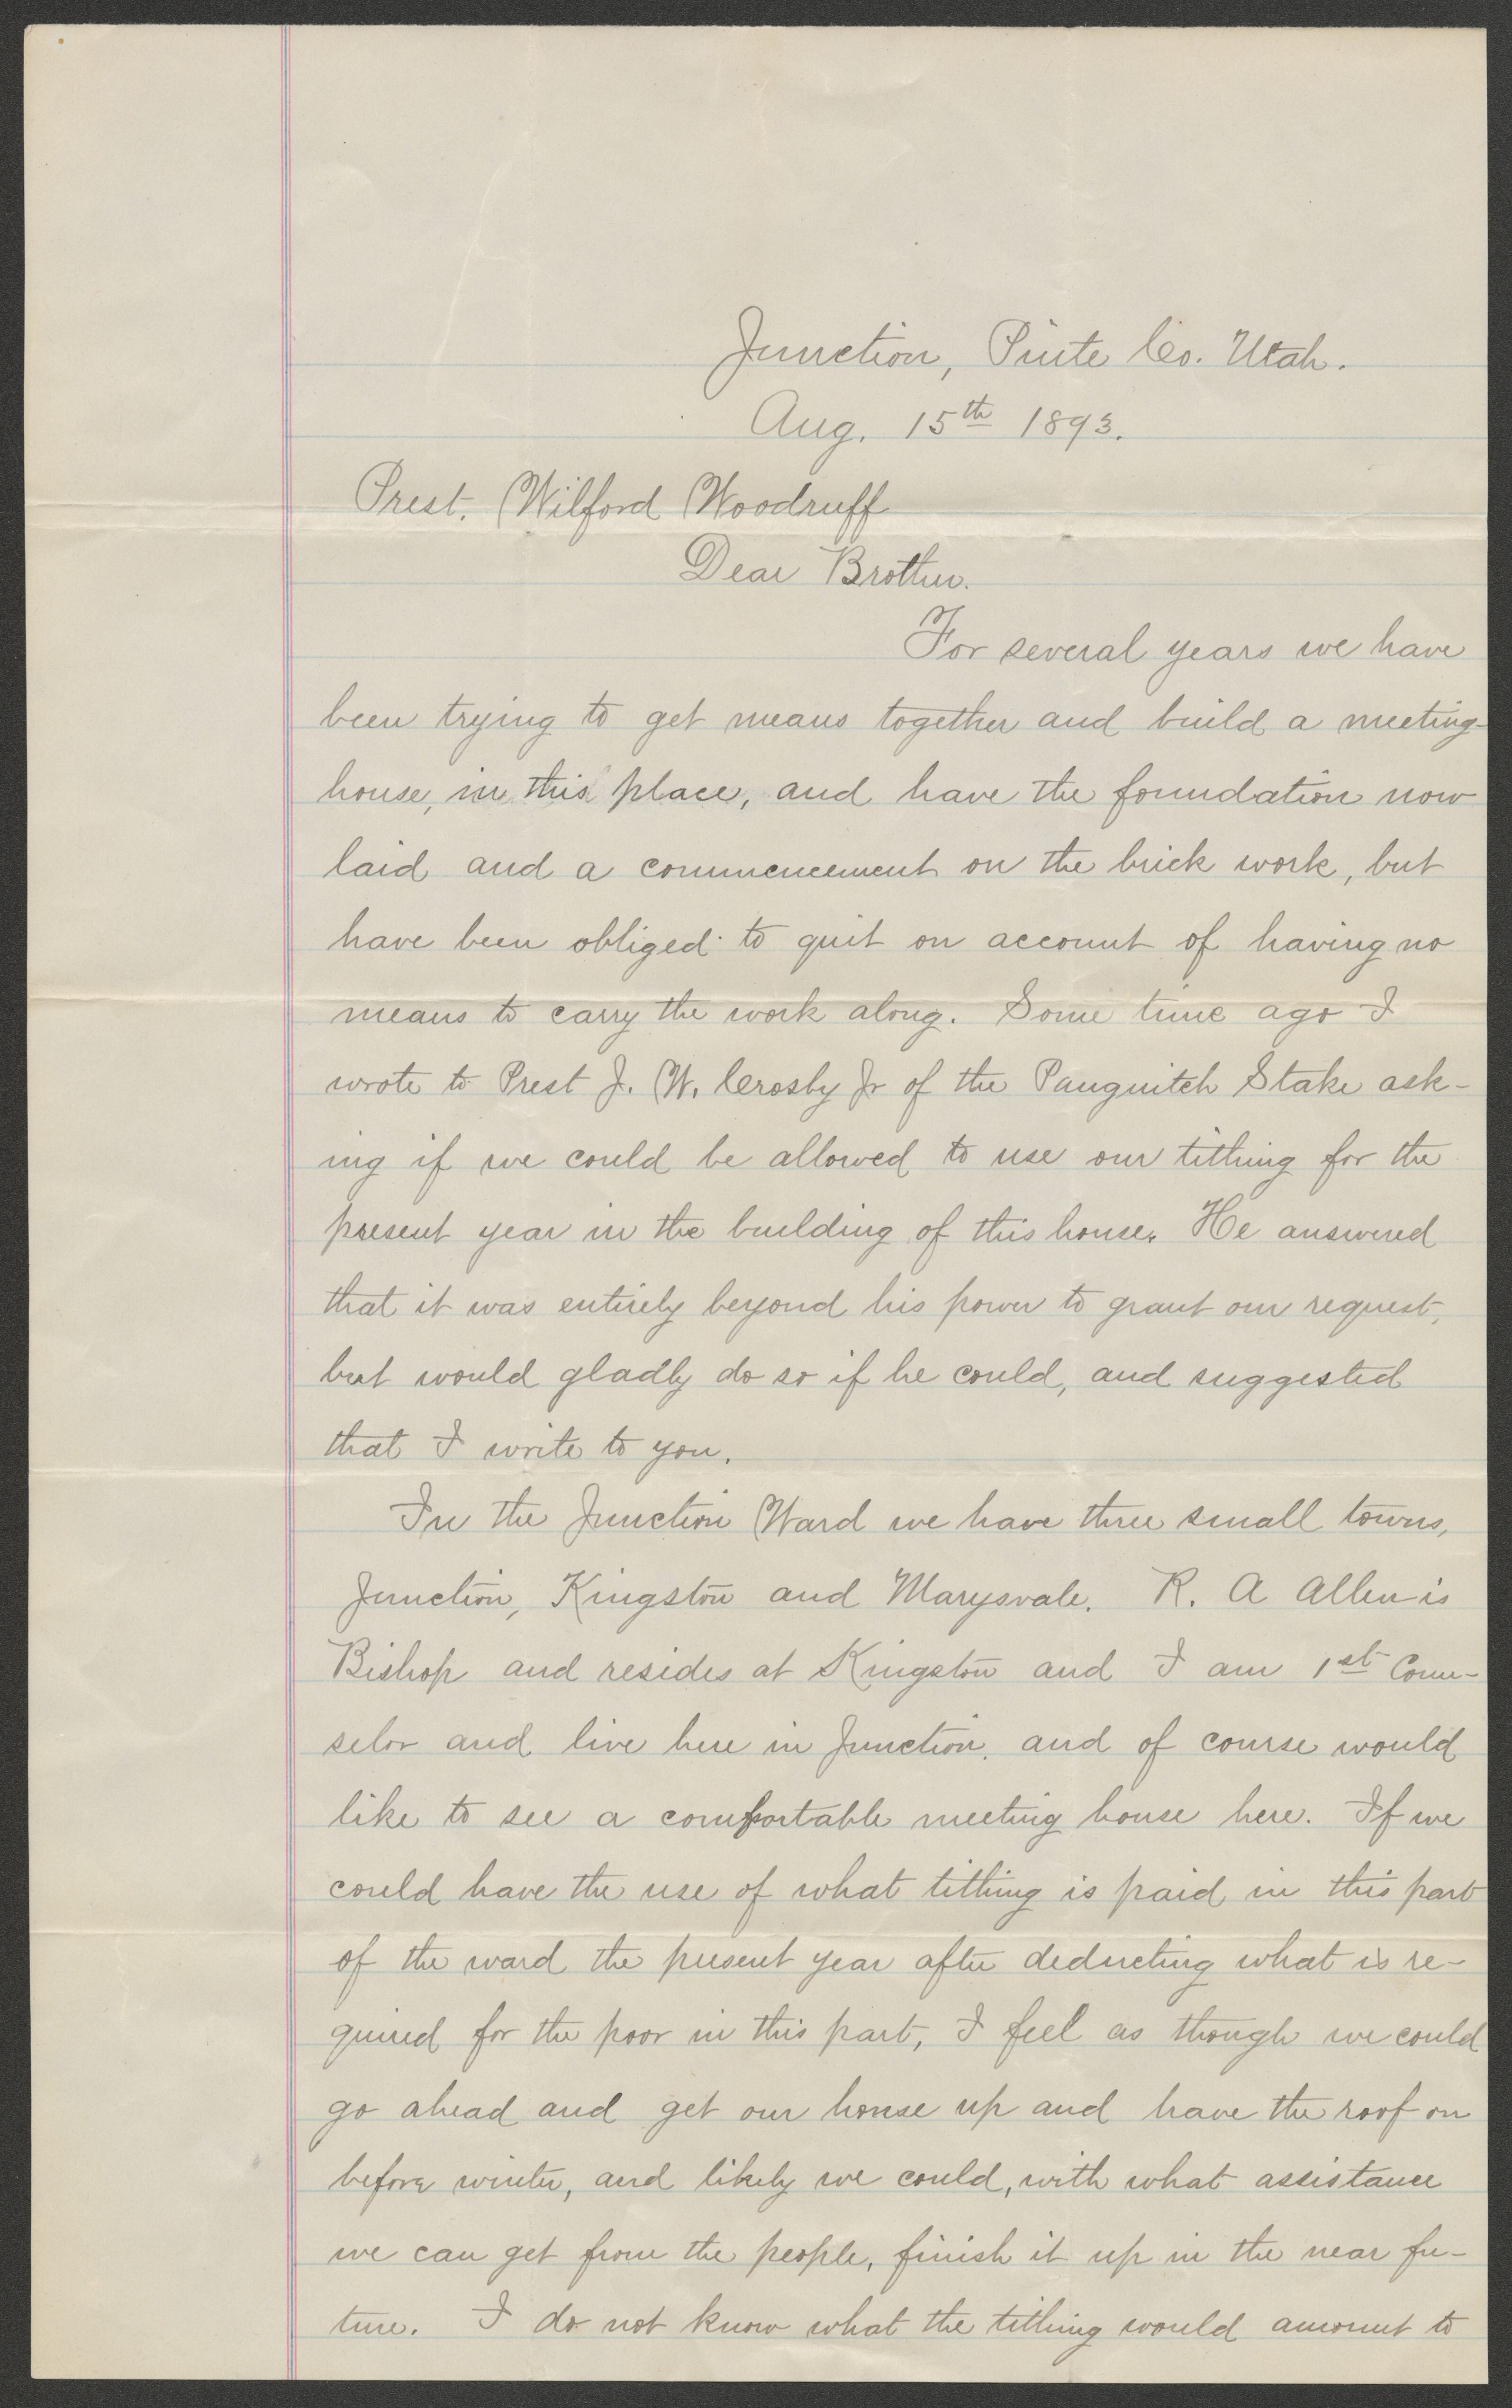 Junction, Piute Co. Utah.
Aug. 15th 1893.
Prest. Wilford Woodruff
Dear Brother.
For several years we have
been trying to get means together and build a meeting-
house, in this place, and have the foundation now
laid and a commencement on the brick work, but
have been obliged to quit on account of having no
means to carry the work along. Some time ago I
wrote to Prest J. W. Crosby Jr of the Panguitch Stake ask-
ing if we could be allowed to use our tithing for the
present year in the building of this house. He answered
that it was entirely beyond his power to grant our request,
but would gladly do so if he could, and suggested
that I write to you.
In the Junction Ward we have three small towns,
Junction, Kingston and Marysvale. R. A Allen is
Bishop and resides at Kingston and I am 1st Coun-
selor and live here in Junction, and of course would
like to see a comfortable meeting house here. If we
could have the use of what tithing is paid in this part
of the ward the present year after deducting what is re-
quired for the poor in this part, I feel as though we could
go ahead and get our house up and have the roof on
before winter, and likely we could, with what assistance
we can get from the people, finish it up in the near fu-
ture. I do not know what the tithing would amount to